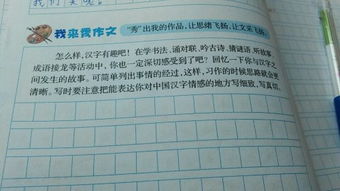 我们
我来秀作文 “秀”出我的作品,让思绪飞扬,让文采飞扬
怎么样,汉字有趣吧!在学书法、诵对联、吟古诗、猜谜语、听故事、
成语接龙等活动中,你也一定深切感受到了吧?回忆一下你与汉字之
间发生的故事。可简单列出事情的经过,这样,习作的时候思路就会更
清晰。写时要注意把能表达你对中国汉字情感的地方写细致,写真切。